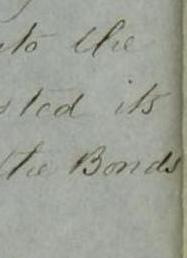 into the
sted its
the Bonds